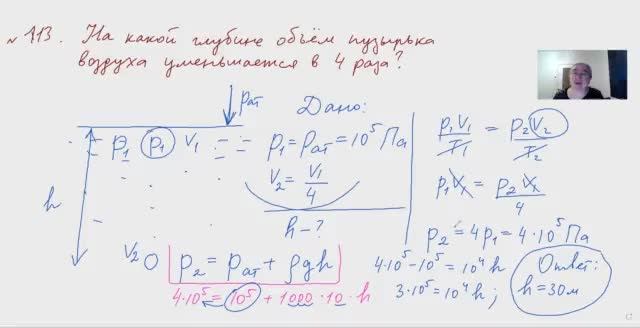 № 113. На какой глубине объём пузырька
воздуха уменьшается в 4 раза?
Pат
Дано:
P₁ P₁ V₁
P₁ = Pат = 10⁵ Па
V₂ = V₁/4
h - ?
h
V₂
P₂ = Pат + ρgh
4·10⁵ = 10⁵ + 1000·10·h
P₁V₁/T₁ = P₂V₂/T₂
P₁V₁ = P₂V₁/4
P₂ = 4P₁ = 4·10⁵ Па
4·10⁵ - 10⁵ = 10⁴h
3·10⁵ = 10⁴h;
Ответ:
h = 30м